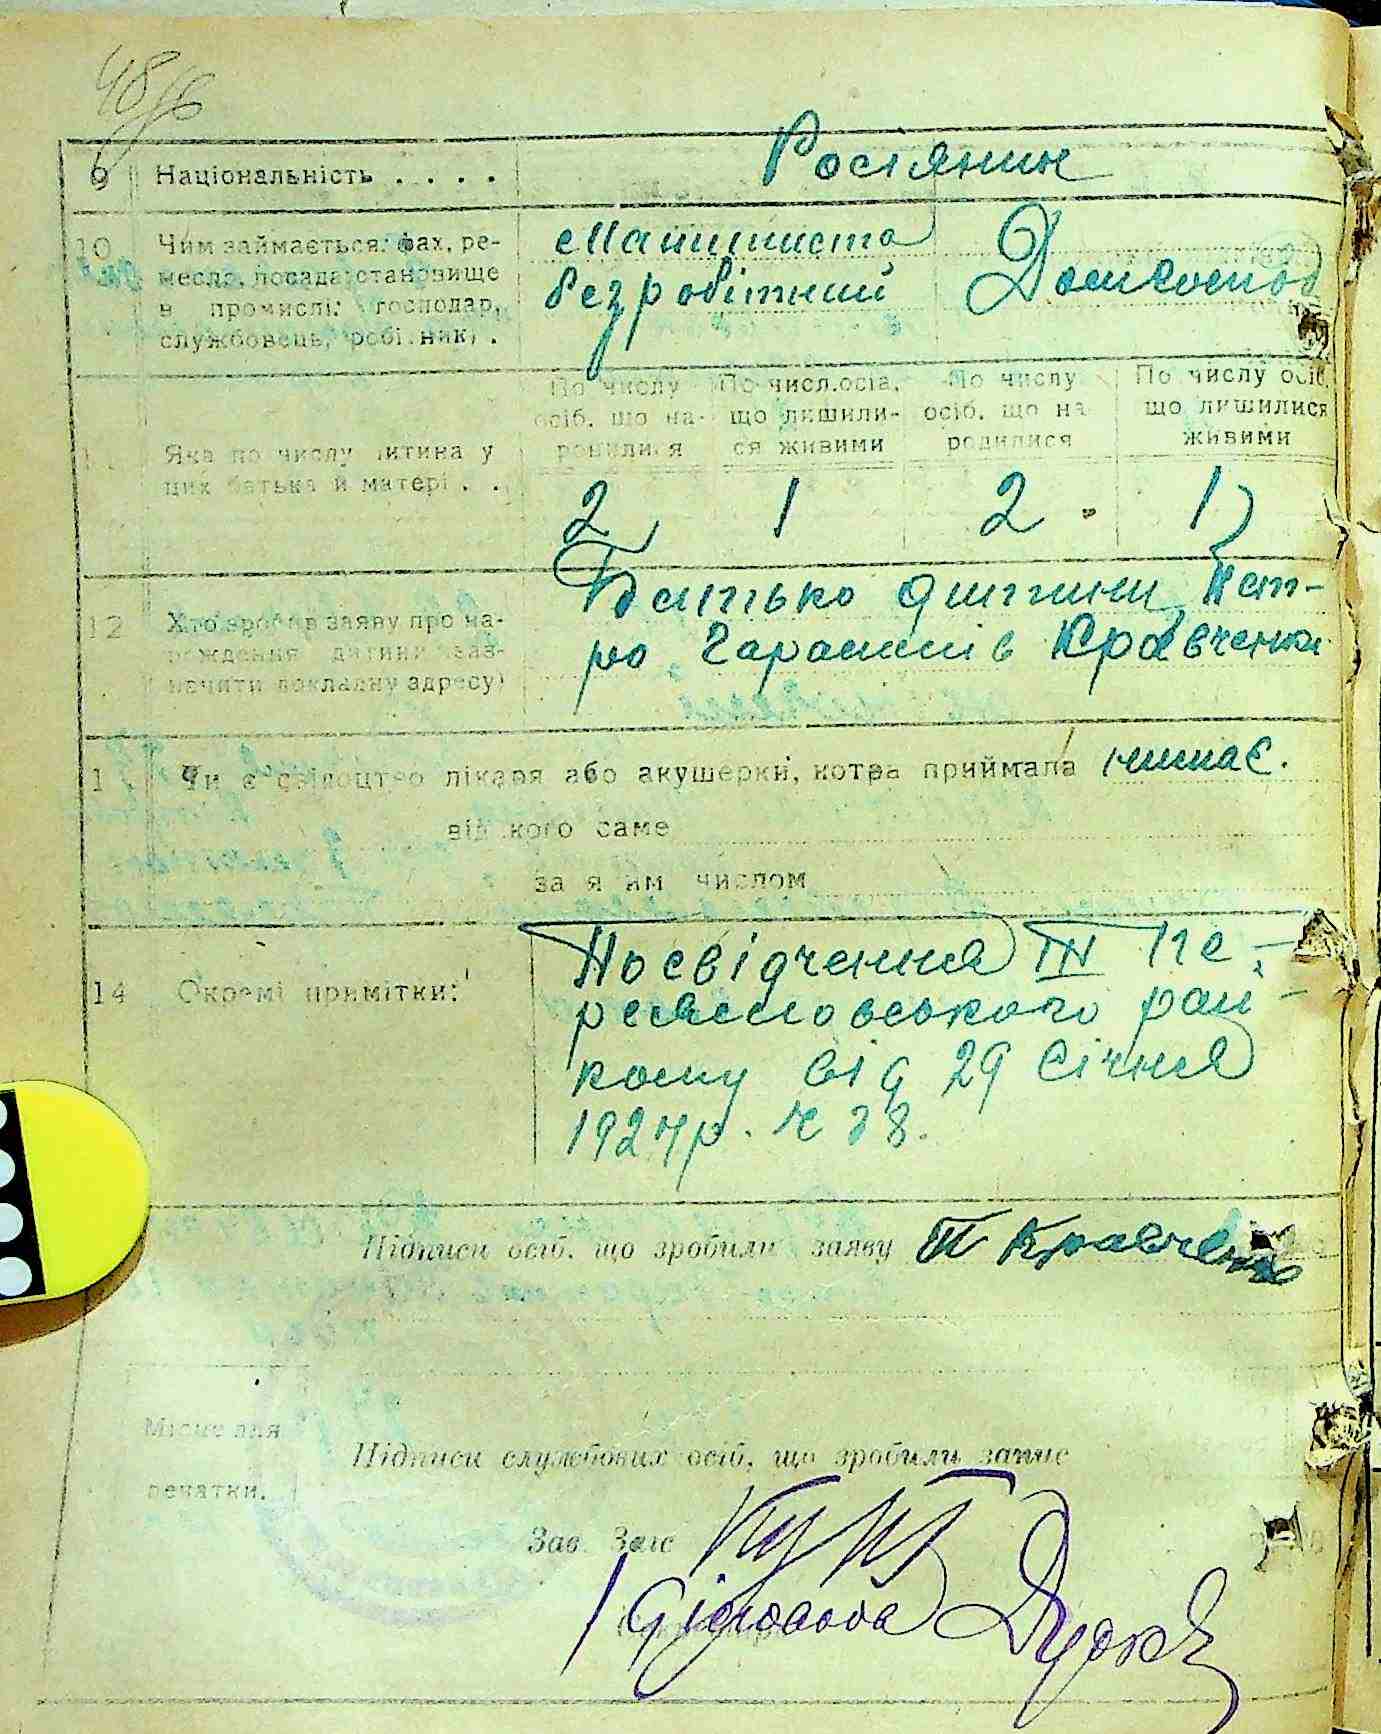 48
9 Національність . . . .
Росіянин
10 Чим займається: фах, ре-
месло, посада становище
в промислі: господар,
службовець, робітник) .
Машиніста
безробітний
Домгоспод
Яка по числу дитина у
цих батька й матері . .
По числу
осіб, що на-
родилися
По числ.осіб,
що лишили-
ся живими
По числу
осіб, що на
родилися
По числу осіб,
що лишилися
живими
2 1 2 1
12 Хто зробив заяву про на-
родження дитини (заз-
начити докладну адресу)
Батько дитини Пет-
ро Гарасимів Кравченко
1 Чи є свідоцтво лікаря або акушерки, котра приймала немає.
від кого саме
за яким числом
14 Окремі примітки:
Посвідчення Пе-
рай-
кому від 29 Січня
1927р. ч 38.
Підписи осіб, що зробили заяву П Кравченко
Місце для
печатки.
Підписи службових осіб, що зробили запис
Зав. Загс
Діловода